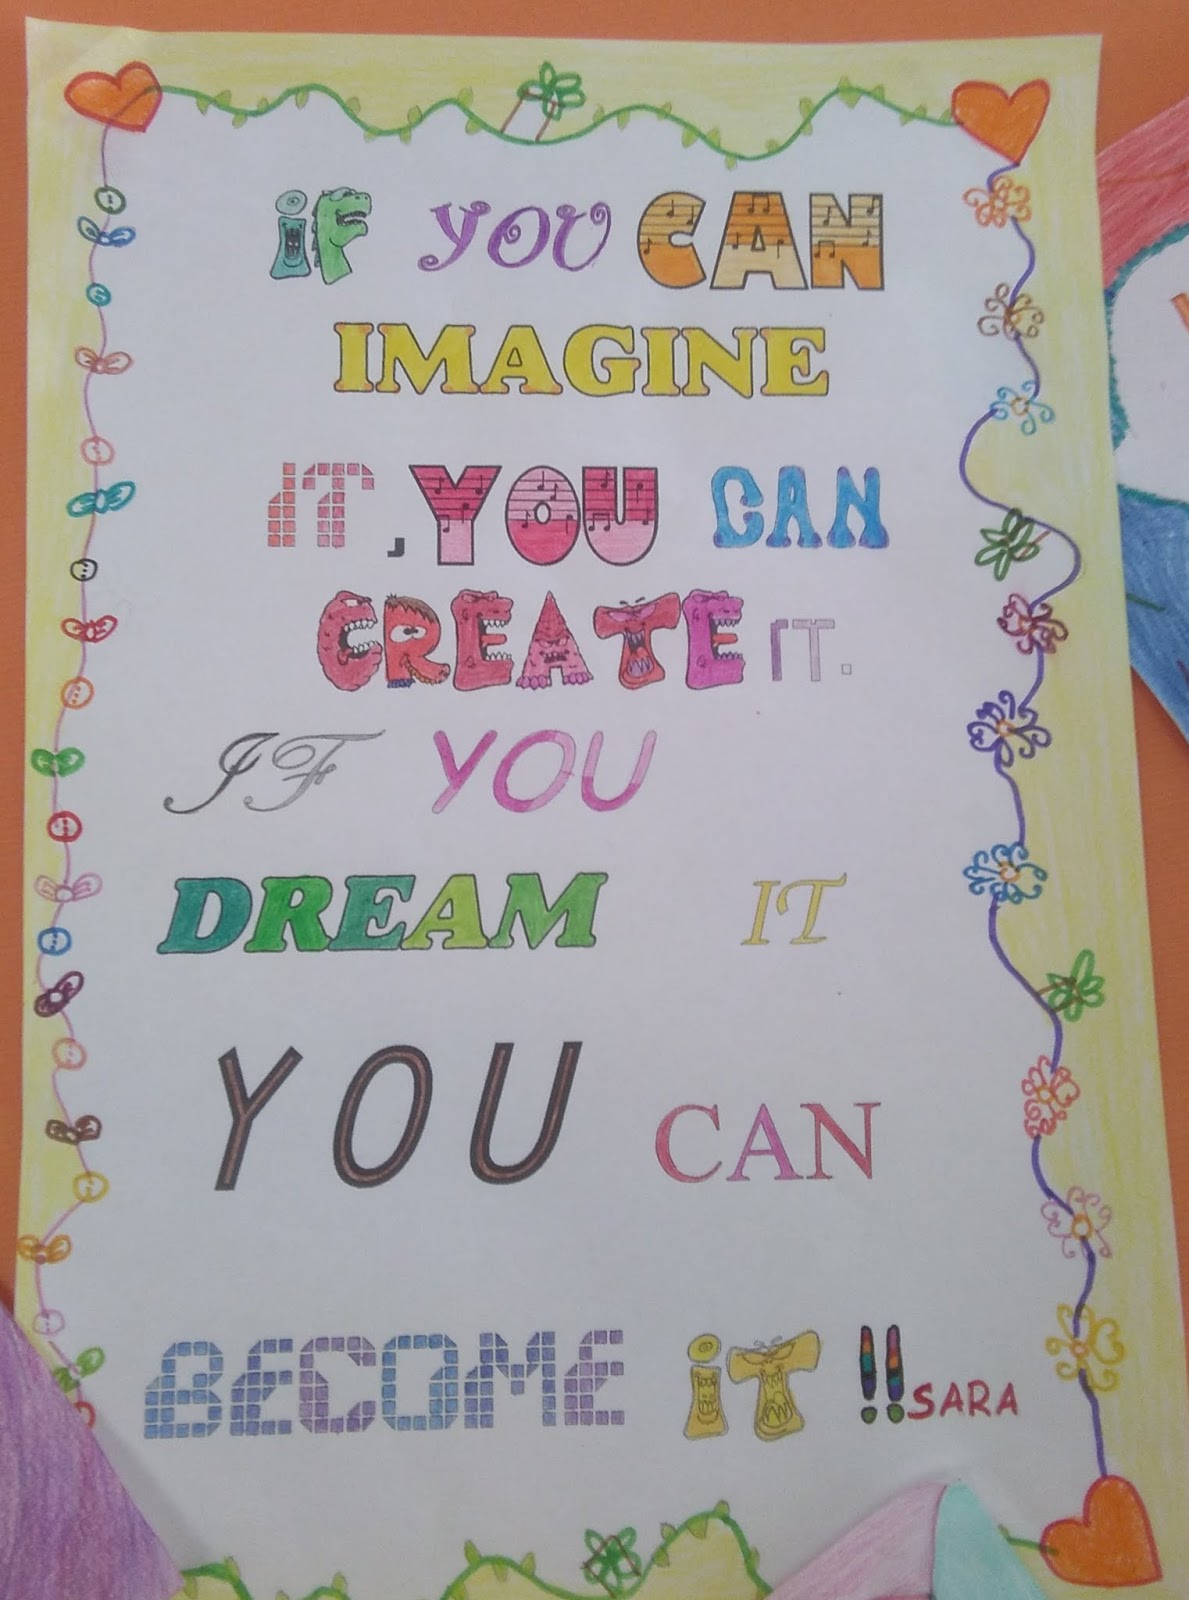 iF YOU CAN
IMAGINE
IT, YOU CAN
CREATE IT.
IF YOU
DREAM IT
YOU CAN
BECOME iT !! SARA